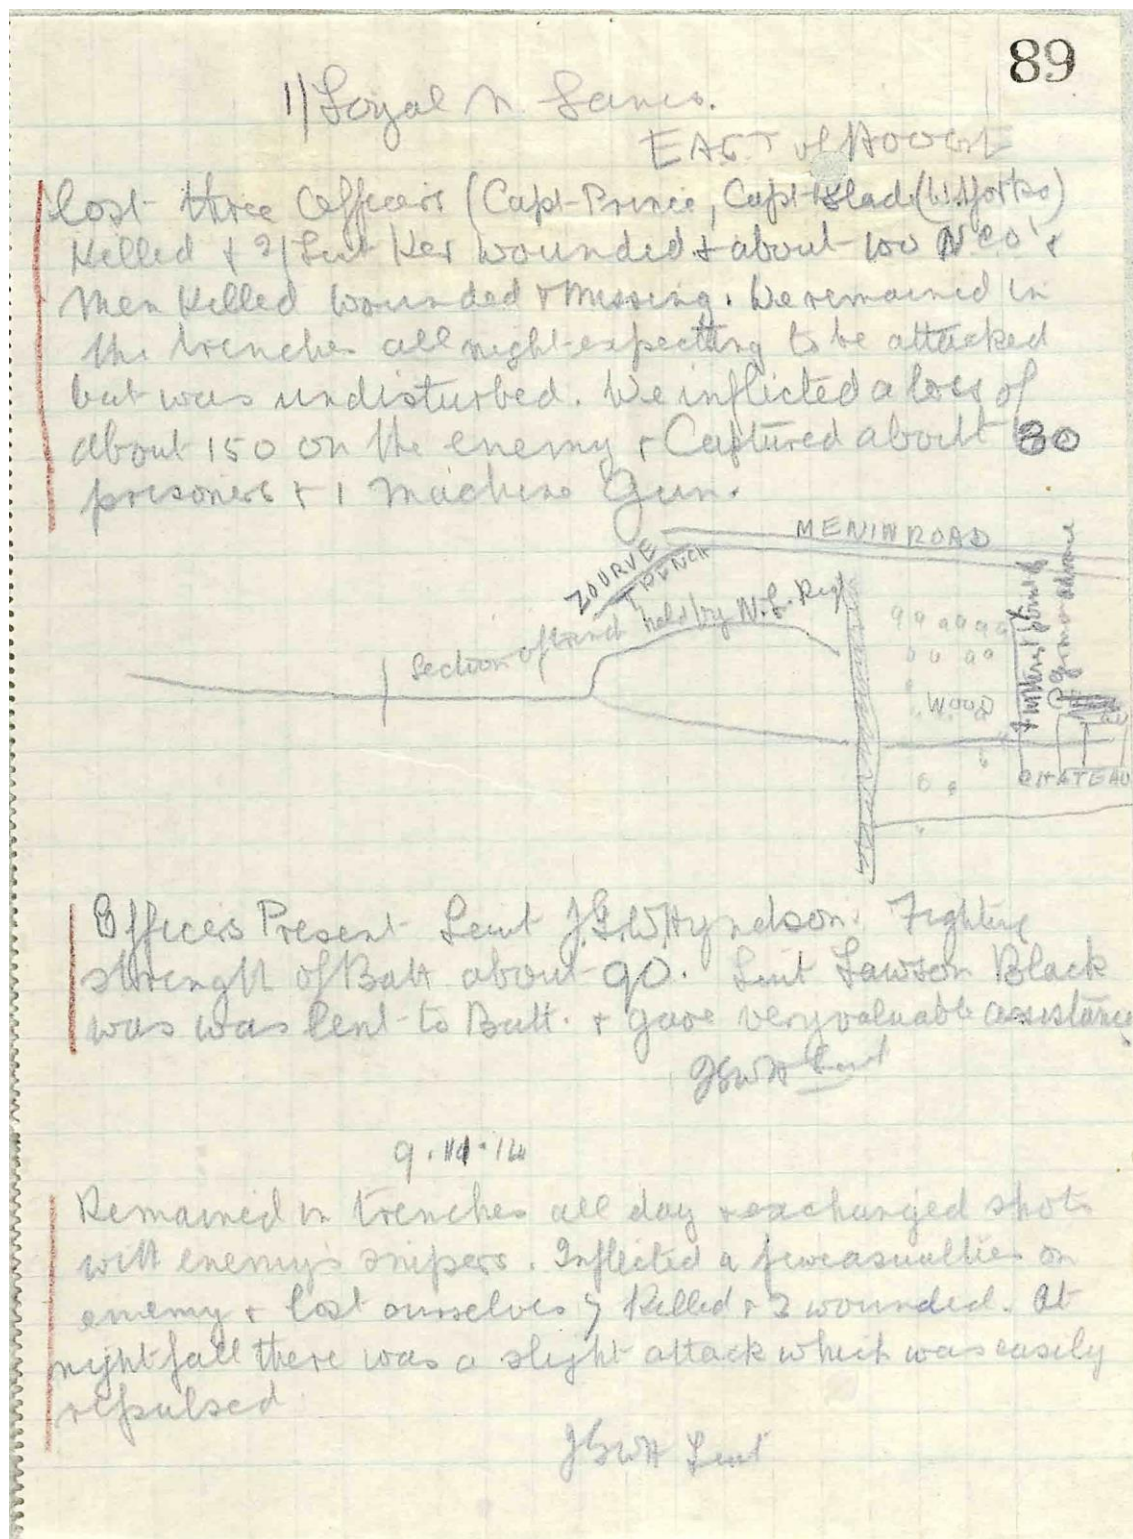 89
1/ Loyal N. Lancs.
EAST of HOOGE
lost three Officers (Capt Prince, Capt Slade (W. Yorks)
killed & 2/Leut Ker wounded & about 100 N.C.O's &
Men killed wounded & missing. We remained in
the trenches all night expecting to be attacked
but was undisturbed. We inflicted a loss of
about 150 on the enemy & Captured about 80
prisoners & 1 machine Gun.
MENIN ROAD
ZOURVE
TRENCH
Section of trench held by N.L. Regt
Furthest point of
German advance
WOOD
CHATEAU
Officers Present Leut J.G.W. Hyndson. Fighting
strength of Batt about 90. Leut Lawson Black
was was lent to Batt. & gave very valuable assistance
JGWH Leut
9.11.14
Remained in trenches all day & exchanged shots
with enemy's snipers. Inflicted a few casualties on
enemy & lost ourselves 7 killed & 2 wounded. At
nightfall there was a slight attack which was easily
repulsed
JGWH Leut